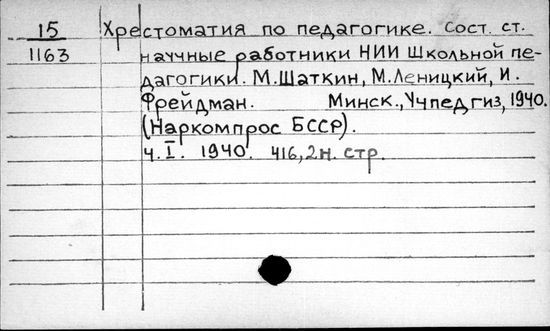 15 Хрестоматия по педагогике. Сост. ст.
1163 научные работники НИИ Школьной пе-
дагогики. М.Шаткин, М.Леницкий, И.
Фрейдман. Минск., Учпедгиз, 1940.
(Наркомпрос БССР).
Ч. I. 1940. 416, 2 н. стр.